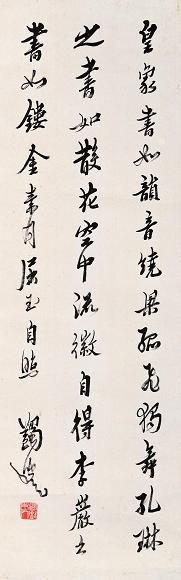 皇象書如韻音繞梁孤飛獨舞孔琳
之書如散花空中流徽自得李巖之
書如鏤金素月屈玉自照
蠲